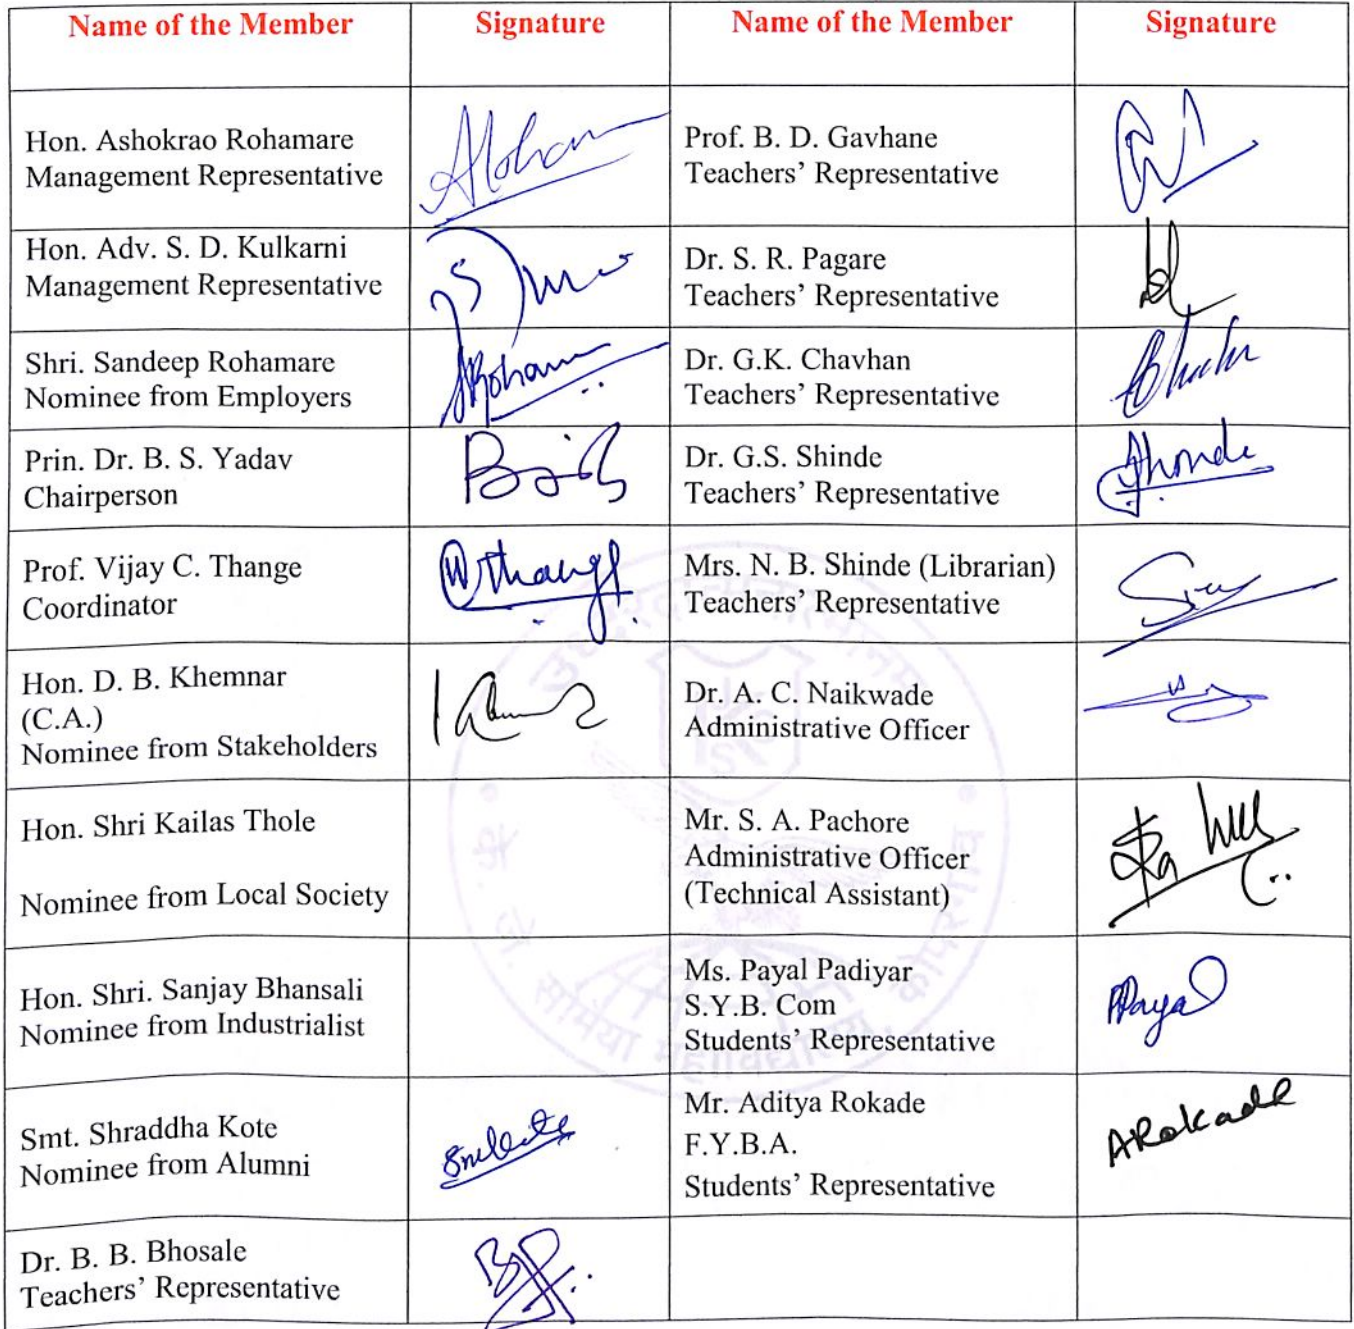 Name of the Member Signature Name of the Member Signature
Hon. Ashokrao Rohamare
Management Representative
Prof. B. D. Gavhane
Teachers' Representative
Hon. Adv. S. D. Kulkarni
Management Representative
Dr. S. R. Pagare
Teachers' Representative
Shri. Sandeep Rohamare
Nominee from Employers
Dr. G.K. Chavhan
Teachers' Representative
Prin. Dr. B. S. Yadav
Chairperson
Dr. G.S. Shinde
Teachers' Representative
Prof. Vijay C. Thange
Coordinator
Mrs. N. B. Shinde (Librarian)
Teachers' Representative
Hon. D. B. Khemnar
(C.A.)
Nominee from Stakeholders
Dr. A. C. Naikwade
Administrative Officer
Hon. Shri Kailas Thole
Nominee from Local Society
Mr. S. A. Pachore
Administrative Officer
(Technical Assistant)
Hon. Shri. Sanjay Bhansali
Nominee from Industrialist
Ms. Payal Padiyar
S.Y.B. Com
Students' Representative
PPayal
Smt. Shraddha Kote
Nominee from Alumni
Mr. Aditya Rokade
F.Y.B.A.
Students' Representative
ARokade
Dr. B. B. Bhosale
Teachers' Representative